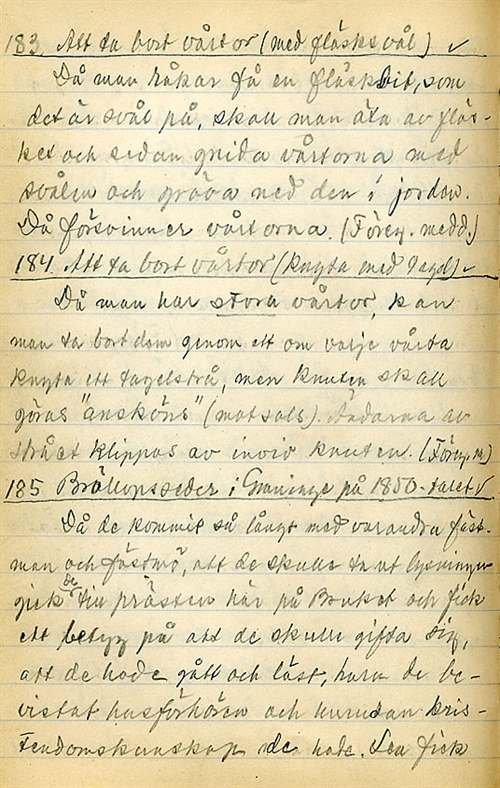 183. Att ta bort vårtor (med fläsksvål) ✓
Då man råkar få en fläskbit, som
det är svål på, skall man äta av fläs-
ket och sedan gnida vårtorna med
svålen och gräva ned den i jorden.
Då försvinner vårtorna. (Föreg. medd.)
184. Att ta bort vårtor (knyta med tagel) ✓
Då man har stora vårtor, kan
man ta bort dem genom att om varje vårta
knyta ett tagelstrå, men knuten skall
göras "ansköns" (motsols). Ändarna av
strået klippas av invid knuten. (Föreg. m)
185 Bröllopsseder i Graninge på 1850-talet ✓
Då de kommit så långt med varandra fäst-
man och fästmö, att de skulle ta ut lysningen
gick de till prästen här på Bruket och fick
ett betyg på att de skulle gifta sig,
att de hade gått och läst, huru de be-
vistat husförhören och hurudan kris-
tendomskunskap de hade. Sen fick